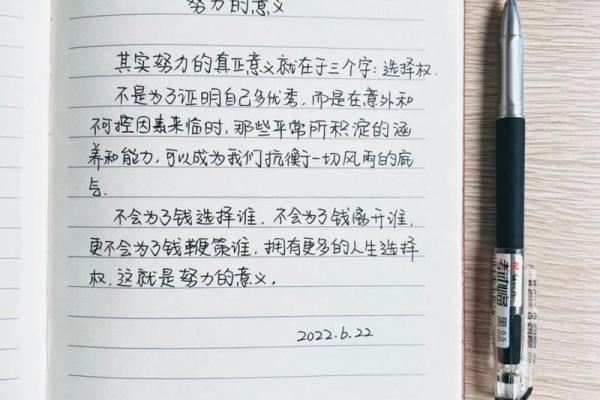 努力的意义
其实努力的真正意义就在于三个字:选择权.
不是为了证明自己多优秀,而是在意外和
不可控因素来临时,那些平常所积淀的涵
养和能力,可以成为我们抗衡一切风雨的底
气.
不会为了钱选择谁,不会为了钱离开谁,
更不会为了钱鞭策谁,拥有更多的人生选择
权,这就是努力的意义.
2022.6.22
考试必备
黑
0.5